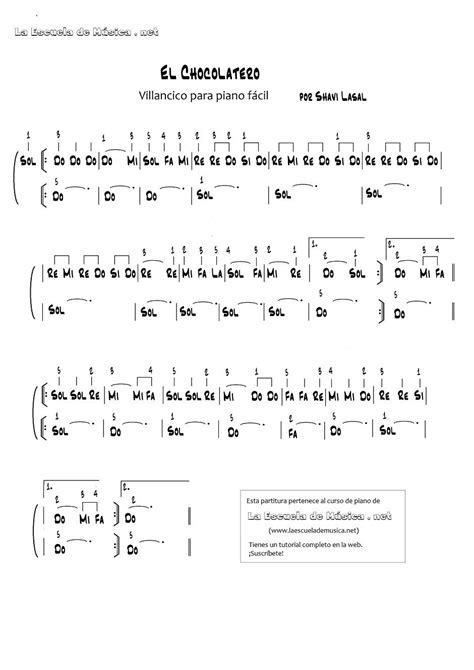 La Escuela de Música . net
El Chocolatero
Villancico para piano fácil por Shavi Lasal
1 3 3 1 5 4 3 2
Sol Do Do Do Do Mi Sol Fa Mi Re Re Do Si Do Re Mi Re Do Si Do Re Re Do Si Do
5
Do Do Do Sol Sol Sol
3 1 2 3 5 4 3 2 1. 2.
Re Mi Re Do Si Do Re Re Mi Fa La Sol Fa Mi Re Do Sol Do Mi Fa
Sol Sol Sol Sol Sol Do Do
5 2 3 4 5 2 3 1 4 3 2 1
Sol Sol Re Mi Mi Fa Sol Sol Re Mi Do Do Fa Fa Re Mi Mi Do Re Re Si
Sol Do Sol Do Fa Do Sol
1. 2.
2 3 4 2
Do Mi Fa Do
5 5
Do Do
Esta partitura pertenece al curso de piano de
La Escuela de Música . net
(www.laescuelademusica.net)
Tienes un tutorial completo en la web.
¡Suscríbete!